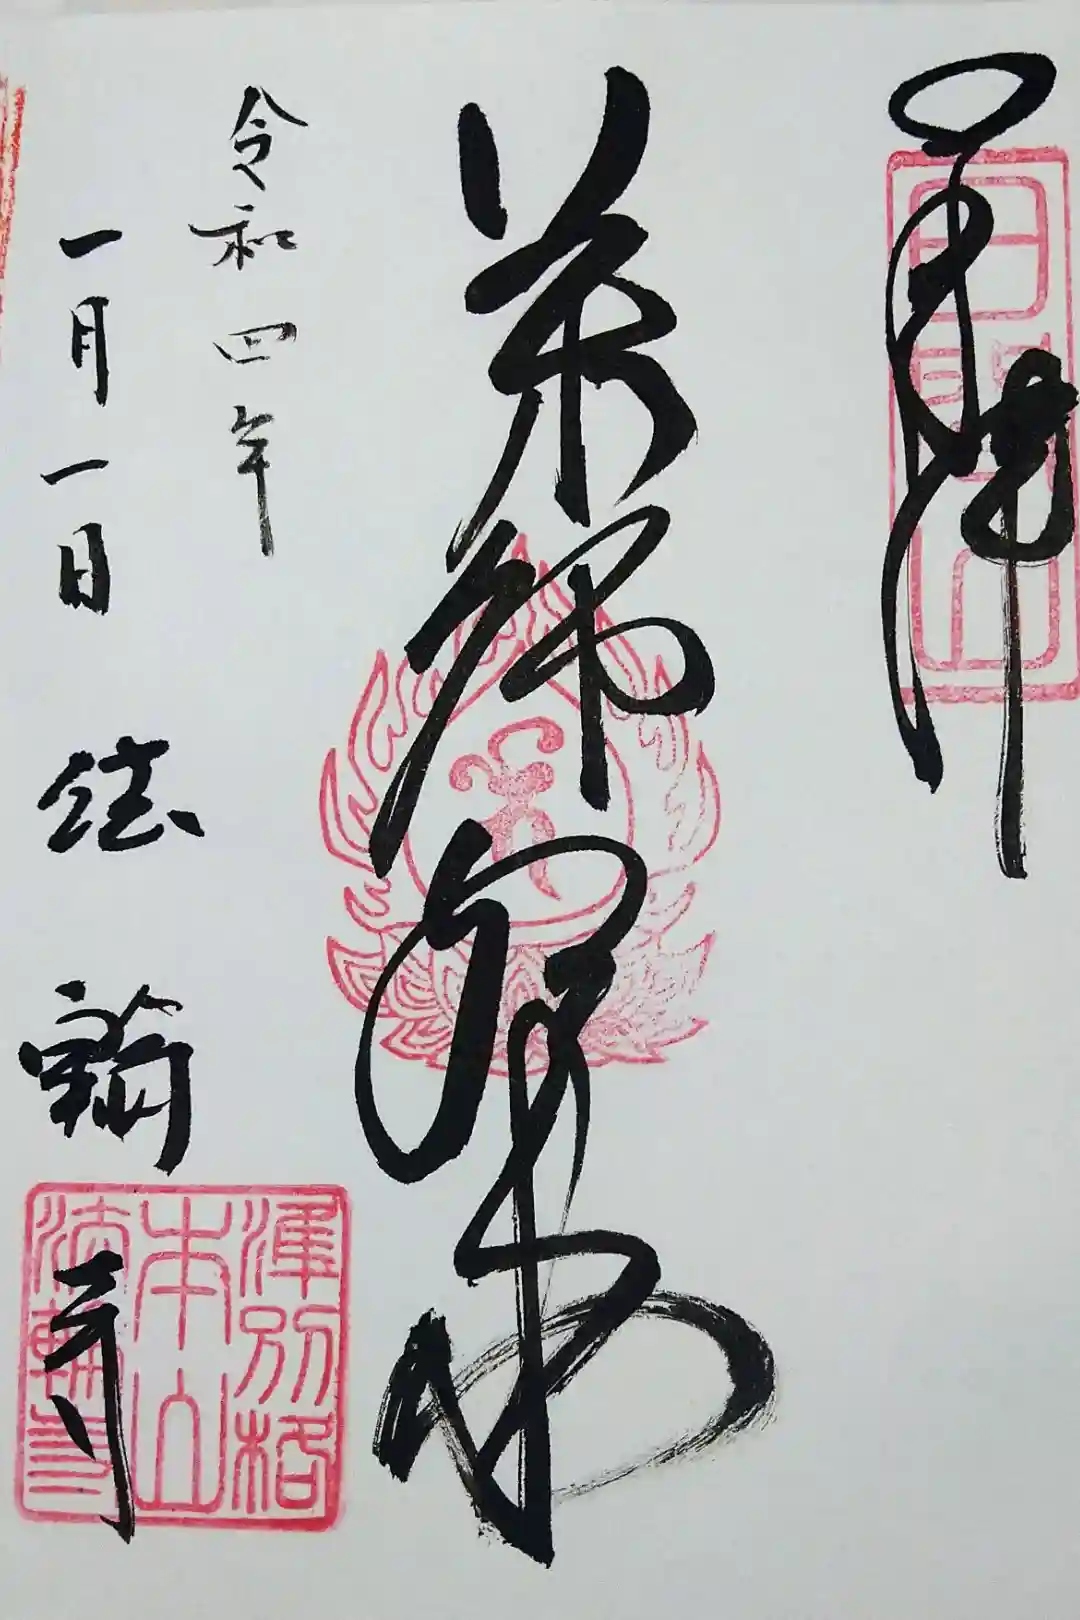 奉拝
薬師如来
令和四年
一月一日 法輪寺
準別格
本山
法輪寺